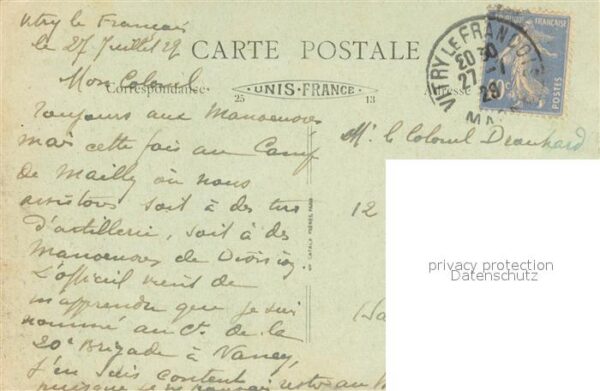 Vitry le François
le 27 Juillet 29
CARTE POSTALE
Mon Colonel
Correspondance
25 UNIS-FRANCE 13
Adresse
VITRY LE FRANÇOIS
20 30
27 - 7
29
MARNE
FRANÇAISE
POSTES
Toujours aux Manoeuvres
mais cette fois au Camp
de Mailly où nous
assistons soit à des tirs
d'artillerie, soit à des
Manoeuvres de Division.
L'officiel vient de
m'apprendre que je suis
nommé au Ct. de la
20e Brigade à Nancy,
J'en suis content
puisque je
Mr. le Colonel Drouhard
12
CATALA FRÈRES, PARIS
privacy protection
Datenschutz